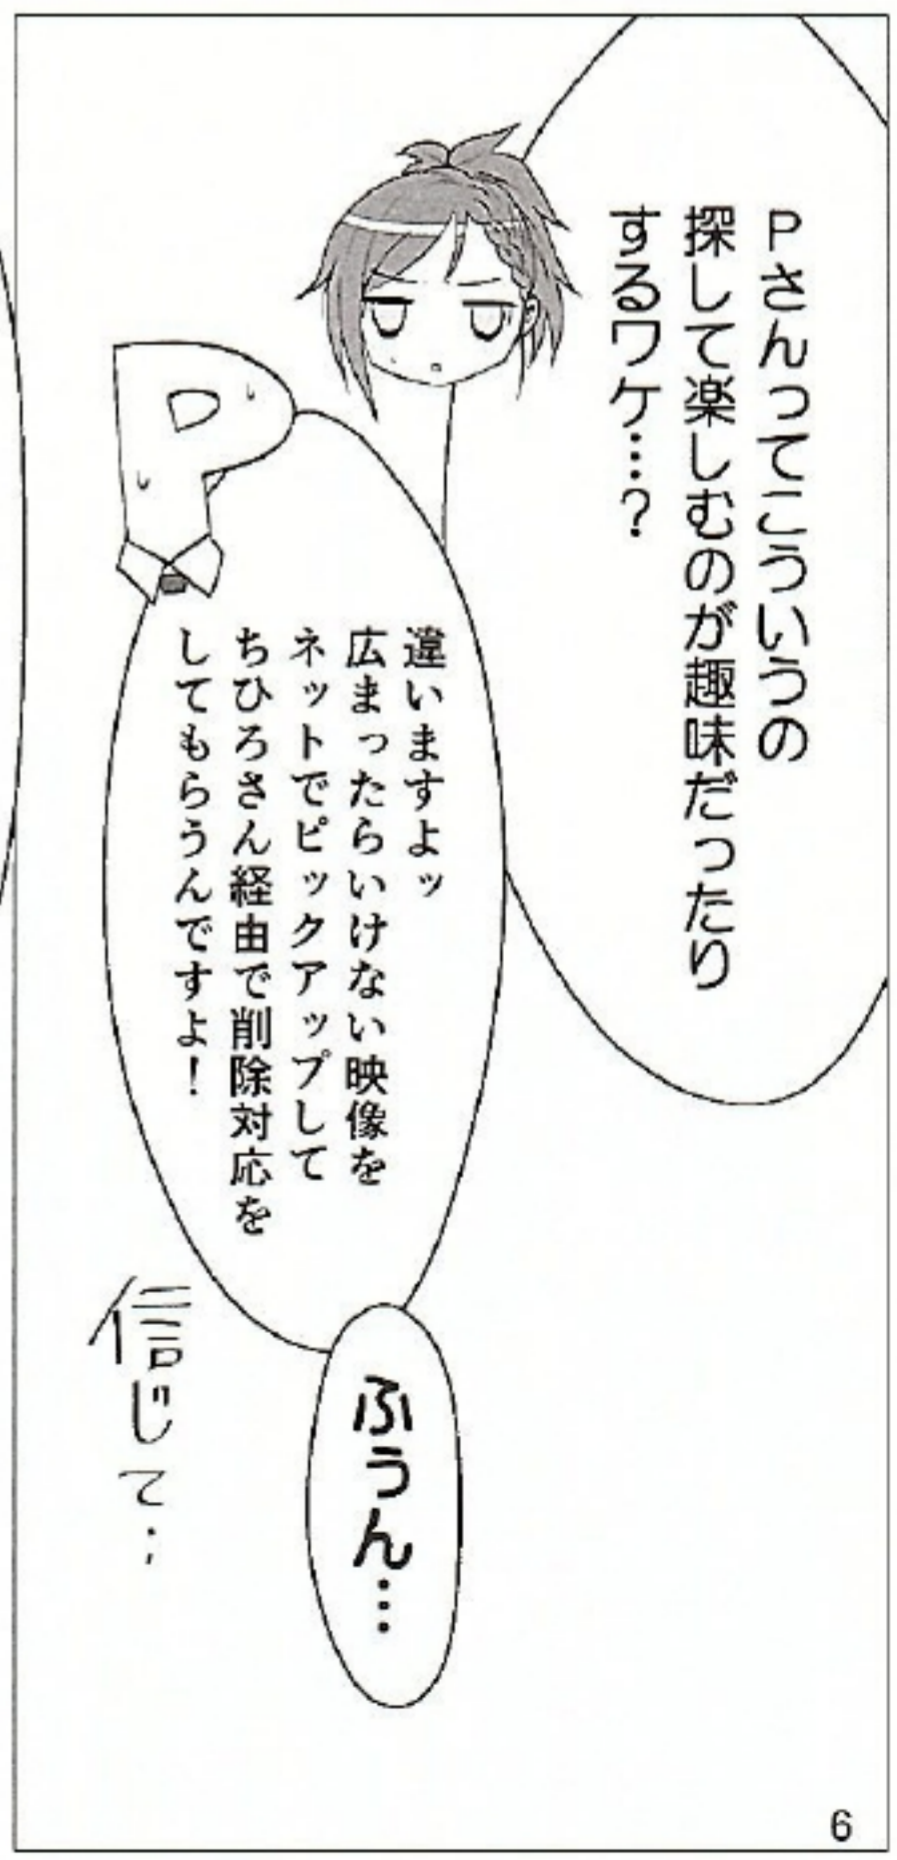 Pさんってこういうの
探して楽しむのが趣味だったり
するワケ…?
違いますよッ
広まったらいけない映像を
ネットでピックアップして
ちひろさん経由で削除対応を
してもらうんですよ!
ふぅん…
信じて…
P
6